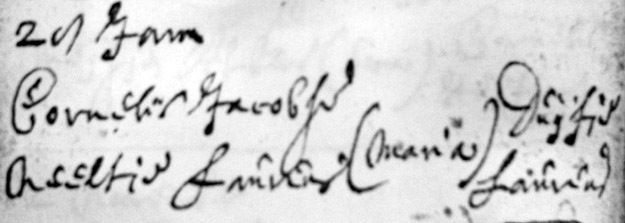 29 Janu
Cornelis Jacobse
Neeltie Laurens (Maria) Duijfie Laurens